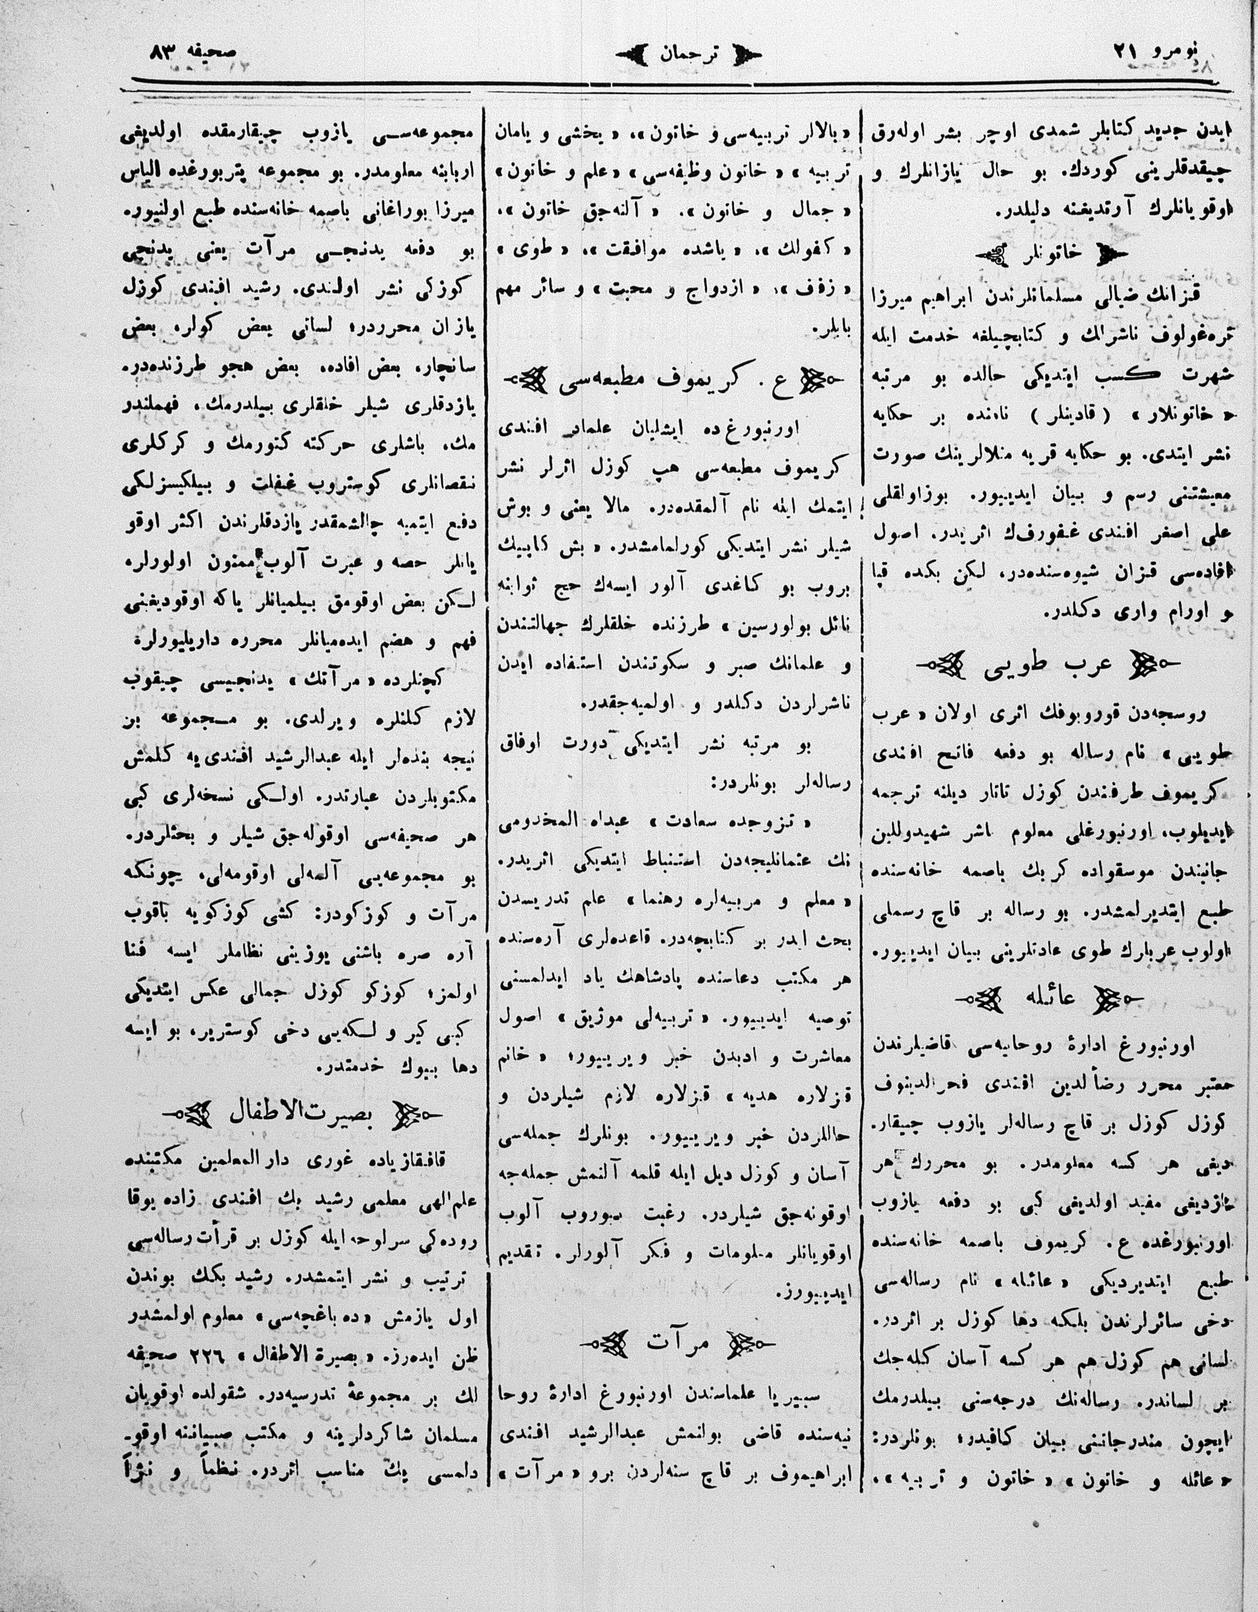 نومرو ٢١
ترجمان
صحیفه ٨٣
ایدن جدید کتابلر شمدی اوچر بشر اوله‌رق
چیقدقلرینی کوردك. بو حال یازانلرك و
اوقویانلرك آرتدیغنه دلیلدر.
خاتونلر
قزانك ضیالی مسلمانلرندن ابراهیم میرزا
تره‌غولوف ناشرلك و کتابچیلغه خدمت ایله
شهرت کسب ایتدیکی حالده بو مرتبه
«خاتونلار» (قادینلر) نامنده بر حکایه
نشر ایتدی. بو حکایه قریه منلالرینك صورت
معیشتنی رسم و بیان ایدییور. بوزاولقلی
علی اصغر افندی غفورفك اثریدر. اصول
افاده‌سی قزان شیوه‌سنده‌در، لکن بکده قبا
و اورام واری دکلدر.
عرب طویی
روسجه‌دن قوروبوفك اثری اولان «عرب
طویی» نام رساله بو دفعه فاتح افندی
کریموف طرفندن کوزل تاتار دیلنه ترجمه
ایدیلوب، اورنبورغلی معلوم ناشر شهیدوللین
جانبندن موسقواده کربك باصمه خانه‌سنده
طبع ایتدیرلمشدر. بو رساله بر قاچ رسملی
اولوب عربلرك طوی عادتلرینی بیان ایدییور.
عائله
اورنبورغ ادارۀ روحانیه‌سی قاضیلرندن
معتبر محرر رضأ‌لدین افندی فخرالدینوف
کوزل کوزل بر قاچ رساله‌لر یازوب چیقار.
دیغی هر کسه معلومدر. بو محررك هر
یازدیغی مفید اولدیغی کبی بو دفعه یازوب
اورنبورغده ع. کریموف باصمه خانه‌سنده
طبع ایتدیردیکی «عائله» نام رساله‌سی
دخی سائرلرندن بلکه دها کوزل بر اثردر.
لسانی هم کوزل هم هر کسه آسان کله‌جك
بر لساندر. رساله‌نك درجه‌سنی بیلدرمك
ایچون مندرجاتنی بیان کافیدر؛ بونلردر:
«عائله و خاتون» «خاتون و تربیه»،
«بالالر تربیه‌سی و خاتون»، «یخشی و یامان
تربیه» «خاتون وظیفه‌سی» «علم و خاتون»
«جمال و خاتون». «آلنه‌جق خاتون»،
«کفولك»، «یاشده موافقت»، «طوی»
«زفف»، «ازدواج و محبت» و سائر مهم
بابلر.
ع. کریموف مطبعه‌سی
اورنبورغ‌ده ایشلیان علمادن افندی
کریموف مطبعه‌سی هپ کوزل اثرلر نشر
ایتمك ایله نام آلمقده‌در. مالا یعنی و بوش
شیلر نشر ایتدیکی کورلمامشدر. «بش کاپیك
بروب بو کاغدی آلور ایسه‌ك حج ثوابنه
نائل بولورسین» طرزنده خلقلرك جهالتندن
و علمانك صبر و سکوتندن استفاده ایدن
ناشرلردن دکلدر و اولمیه‌جقدر.
بو مرتبه نشر ایتدیکی دورت اوفاق
رساله‌لر بونلردر:
«تزوجده سعادت» عبدﷲ المخدومی
نك عثمانلیجه‌دن استنباط ایتدیکی اثریدر.
«معلم و مربیه‌لره رهنما» علم تدریسدن
بحث ایدر بر کتابچه‌در. قاعده‌لری آره‌سنده
هر مکتب دعاسنده پادشاهك یاد ایدلمسنی
توصیه ایدییور. «تربیه‌لی موژیق» اصول
معاشرت و ادبدن خبر ویرییور؛ «خانم
قزلاره هدیه» قزلاره لازم شیلردن و
حاللردن خبر ویرییور. بونلرك جمله‌سی
آسان و کوزل دیل ایله قلمه آلنمش جمله‌جه
اوقونه‌جق شیلردر. رغبت بیوروب آلوب
اوقویانلر معلومات و فکر آلورلر. تقدیم
ایدییورز.
مرآت
سیبیریا علماسندن اورنبورغ ادارۀ روحا
نیه‌سنده قاضی بولنمش عبدالرشید افندی
ابراهیموف بر قاچ سنه‌لردن برو «مرآت»
مجموعه‌سی یازوب چیقارمقده اولدیغی
اربابنه معلومدر. بو مجموعه پتربورغده الیاس
میرزا بوراغانی باصمه خانه‌سنده طبع اولنیور.
بو دفعه یدنجی مرآت یعنی یدنجی
کوزکی نشر اولندی. رشید افندی کوزل
یازان محرردر؛ لسانی بعض کولر، بعض
سانچار، بعض افاده، بعض هجو طرزنده‌در.
یازدقلری شیلر خلقلری بیلدرمك، فهملندر
مك، باشلری حرکته کتورمك و کرکلری
نقصانلری کوستروب غفلت و بیلکیسزلکی
دفع ایتمیه چالشمقدر یازدقلرندن اکثر اوقو
یانلر حصه و عبرت آلوب ممنون اولورلر،
لکن بعض اوقومق بیلمیانلر یاکه اوقودیغنی
فهم و هضم ایده‌میانلر محرره داریلیورلر.
کچنلرده «مرآتك» یدنجیسی چیقوب
لازم کلنلره ویرلدی. بو مجموعه بر
نیجه بنده‌لر ایله عبدالرشید افندی‌یه کلمش
مکتوبلردن عبارتدر. اولکی نسخه‌لری کبی
هر صحیفه‌سی اوقوله‌جق شیلر و بحثلردر.
بو مجموعه‌یی آلمه‌لی اوقومه‌لی، چونکه
مرآت و کوزکودر: کشی کوزکویه باقوب
آره صره باشنی یوزینی نظاملر ایسه فنا
اولمز؛ کوزکو کوزل جمالی عکس ایتدیکی
کبی کیر و لکه‌یی دخی کوستریر، بو ایسه
دها بیوك خدمتدر.
بصیرت‌الاطفال
قافقازیاده غوری دارالمعلمین مکتبنده
علم‌الهی معلمی رشید بك افندی زاده یوقا
روده‌کی سرلوحه ایله کوزل بر قرأت رساله‌سی
ترتیب و نشر ایتمشدر. رشید بکك بوندن
اول یازمش «ده باغچه‌سی» معلوم اولمشدر
ظن ایده‌رز. «بصیرة الاطفال» ٢٢٦ صحیفه
لك بر مجموعۀ تدرسیه‌در. شقولده اوقویان
مسلمان شاکردلرینه و مکتب صبیاننه اوقو.
دلمسی پك مناسب اثردر. نظماً و نثراً